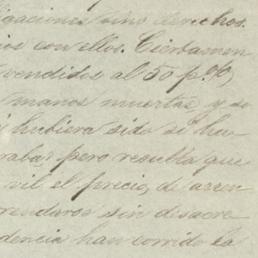 ligaciones sino derechos.
ios con ellos. Ciertamen
vendidos al 50 p.%,
manos muertas y so
i hubiera sido si hu
raba? pero resulta que
vil el precio, de arren
rrendaros sin desacre
dencia han corrido la